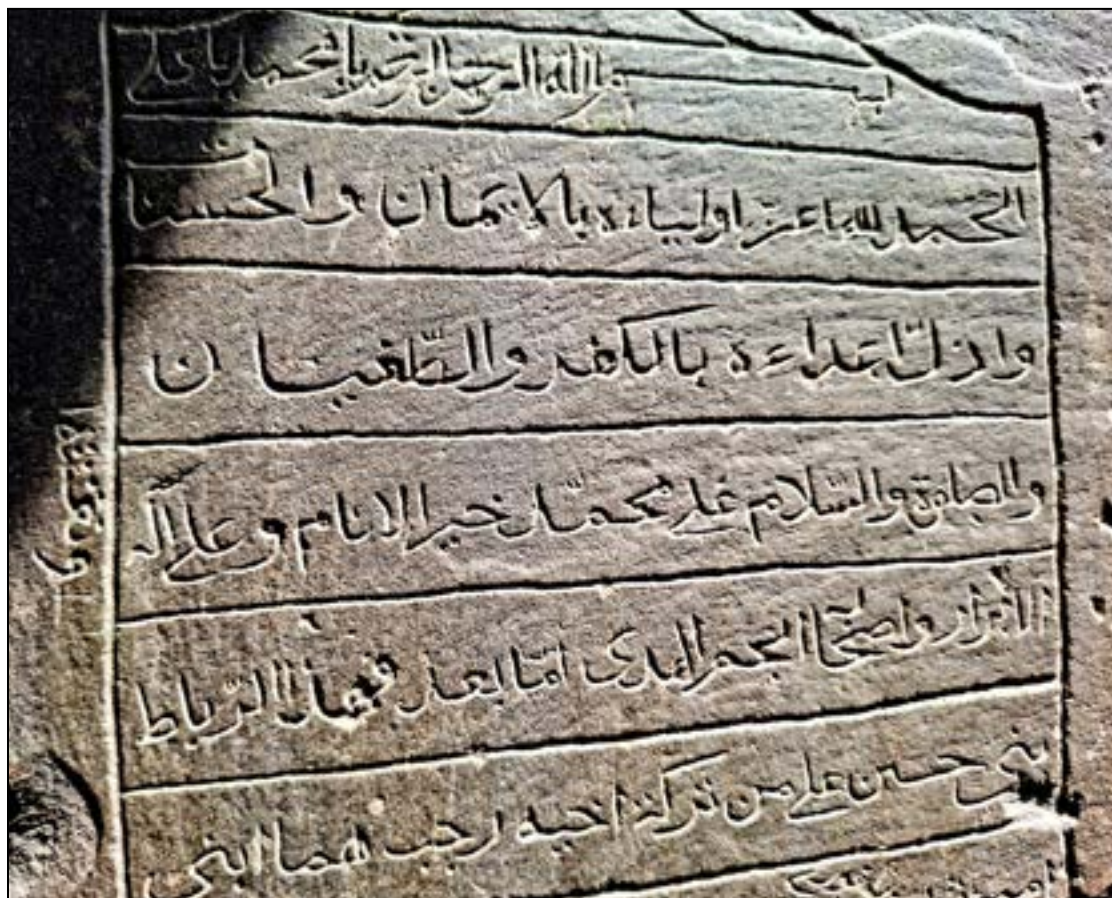 بسم الله الرحمن الرحيم يا محمد يا علي
الحمد لله اعز اولياءه بالايمان والحسنا
واذلّ اعداءه بالكفر والطّغيان
والصلوة والسّلام على محمّد خير الانام وعلى آله
الأبرار واصحا انجم الهدى امّا بعد فهذا الرّباط
بنى حسين على من تركة اخيه رجب هما ابنى